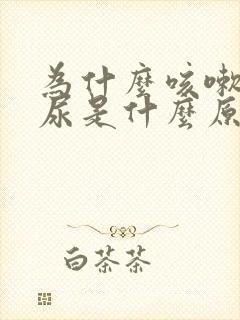 為什麼咳嗽
尿是什麼原
白茶茶